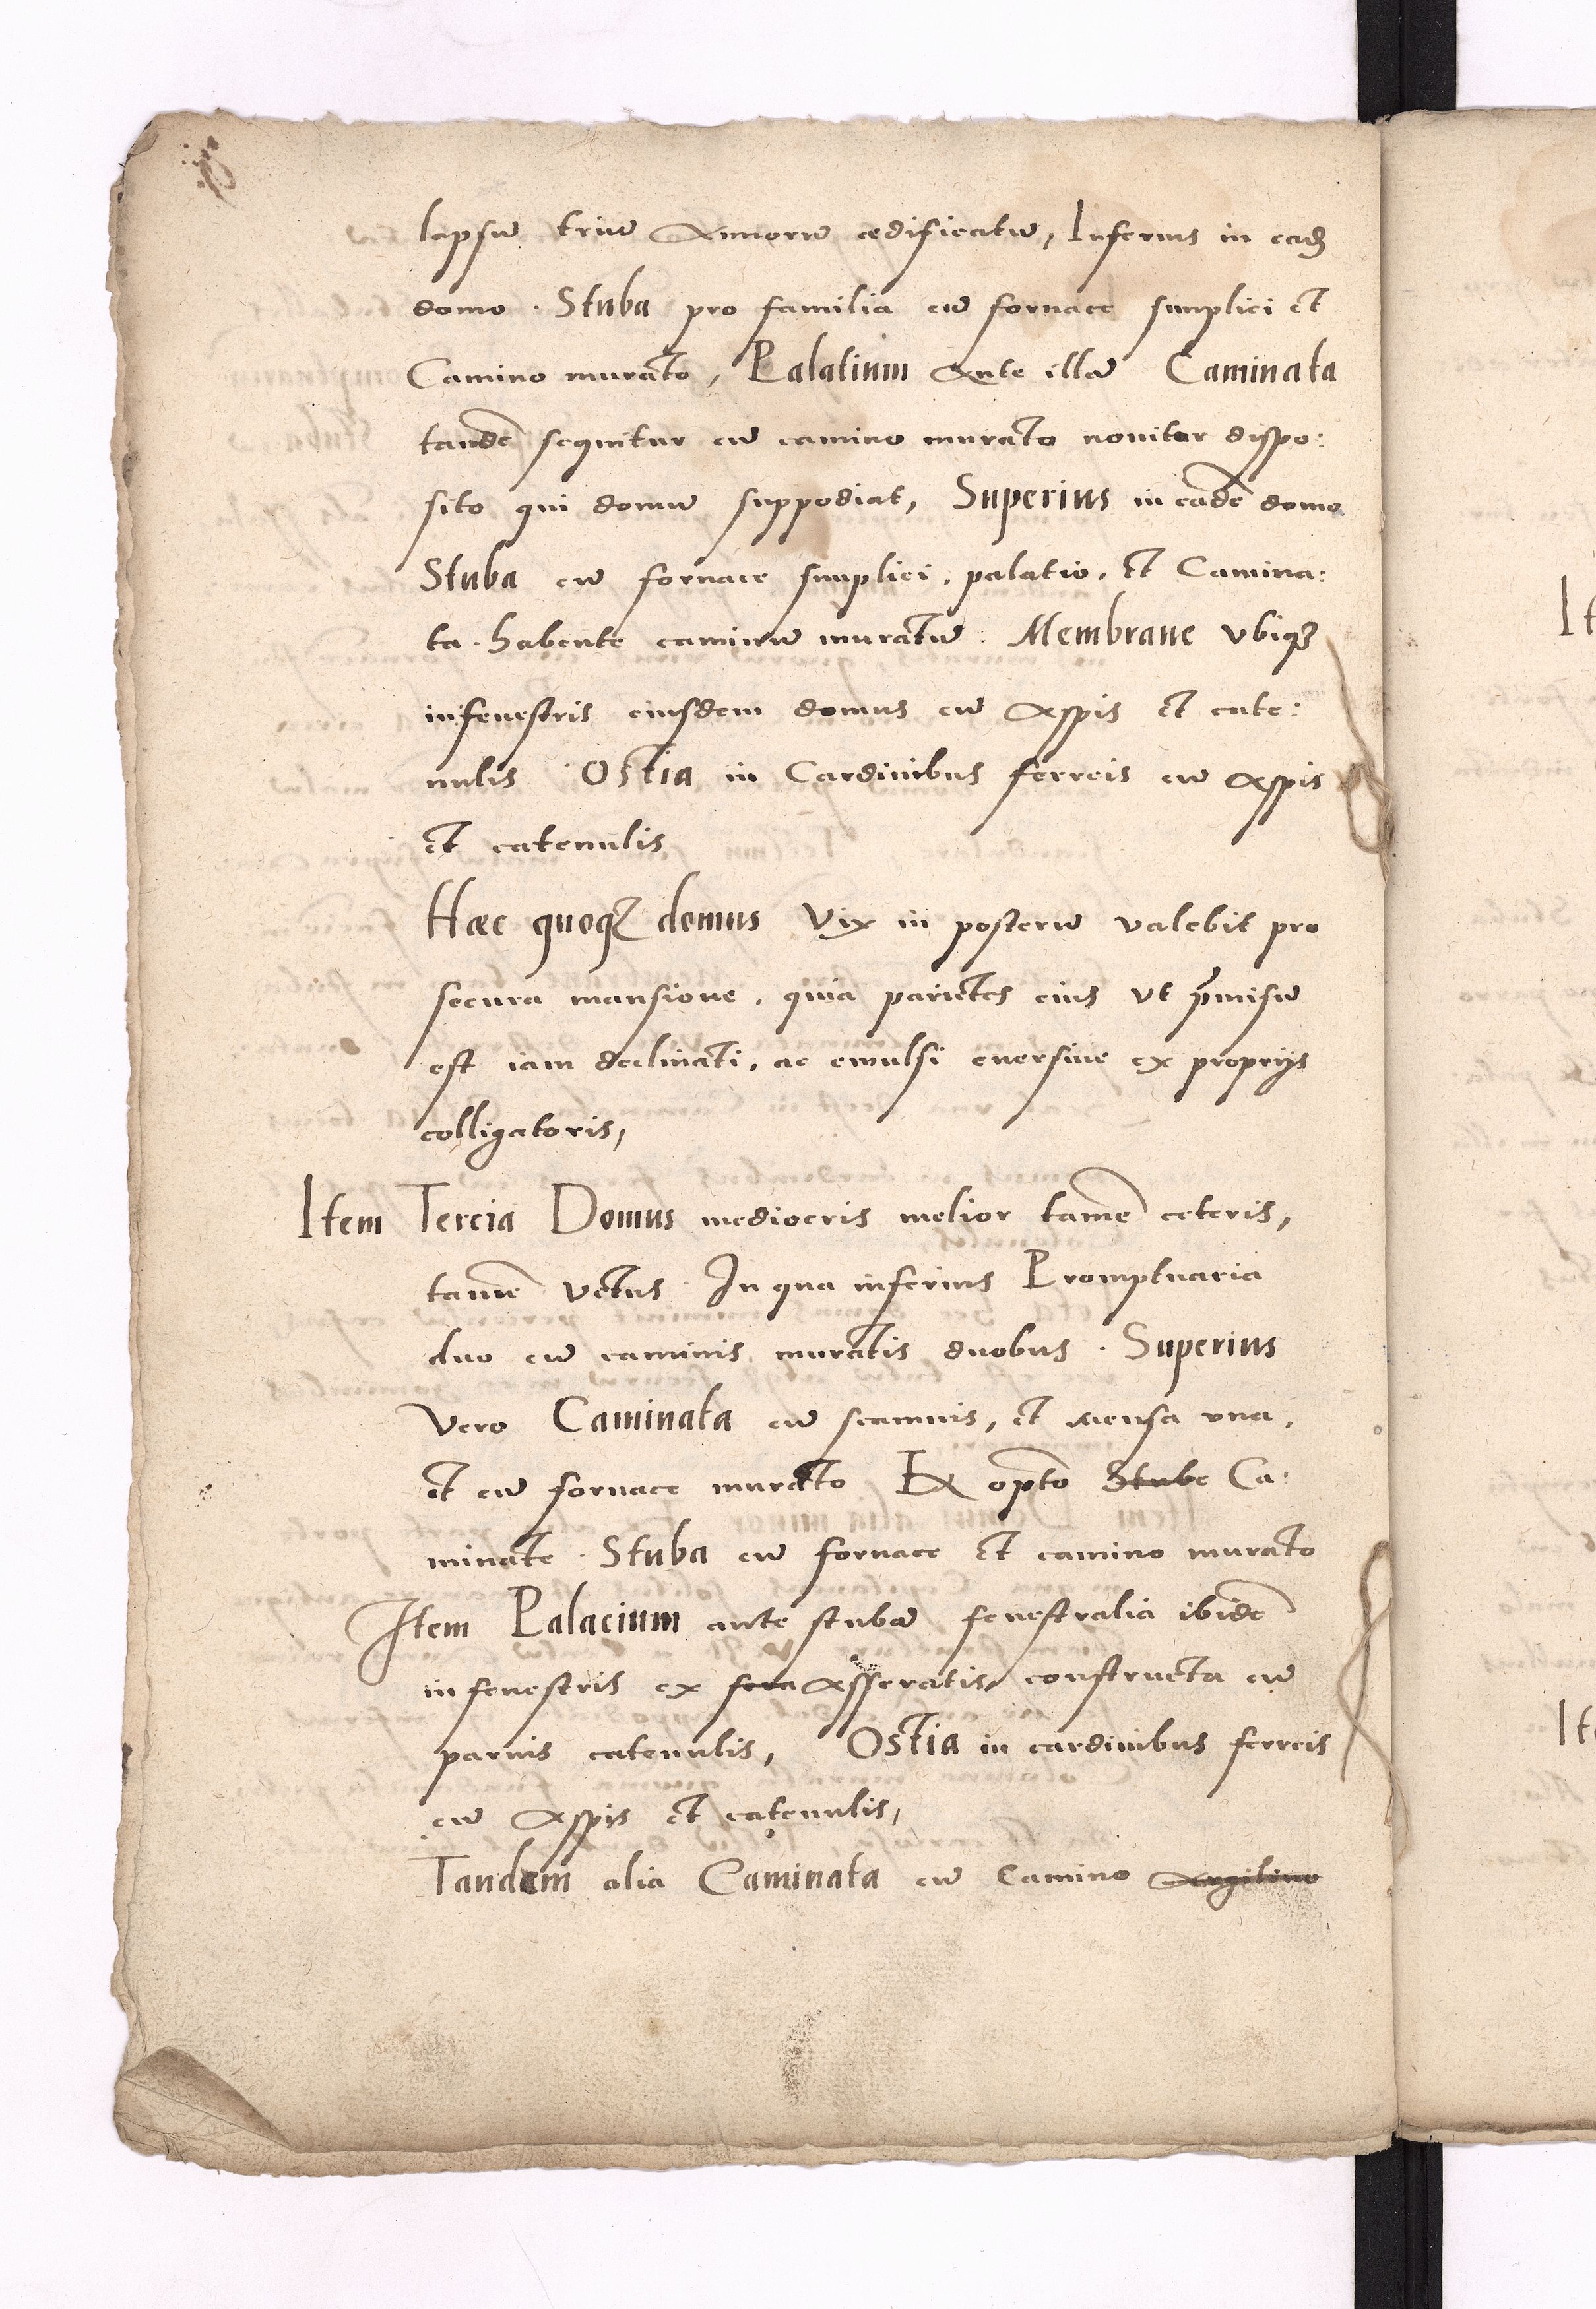 lapsū triū Annorū ædificatū, Inferius in eadē
domo. Stuba pro familia cū fornace simplici et
Camino murato, Palatium Ante illā Caminata
tandē sequitur cū camino murato noviter dispo:
sito qui domū suppodiat, Superius in eadē domo
Stuba cū fornace simplici, palatio, et Camina:
ta. habente caminū muratū. Membrane vbiqȝ
in fenestris eiusdem domus cū Aspis et cate:
nulis Ostia in Cardinibus ferreis cū aspis
et catenulis
Hæc quoqȝ domus Vix in posterū valebit pro
secura mansione, quia parietes eius vt p̄misū
est iam declinati, ac emulsi euersiue ex proprijs
colligatoris,
Item Tercia Domus mediocris melior tamē ceteris,
tamē vetus. In qua inferius Promptuaria
duo cū caminis muratis duobus. Superius
Vero Caminata cū scamnis, et mensa vna,
et cū fornace murato Ex opto Stube Ca:
minate. Stuba cū fornace et camino murato
Item Palacium ante stubā fenestralia ibidē
in fenestris ex fera Asseratis, constructa cū
paruis catenulis, Ostia in cardinibus ferreis
cū Aspis et catenulis,
Tandem alia Caminata cū Camino Argilino
It
It